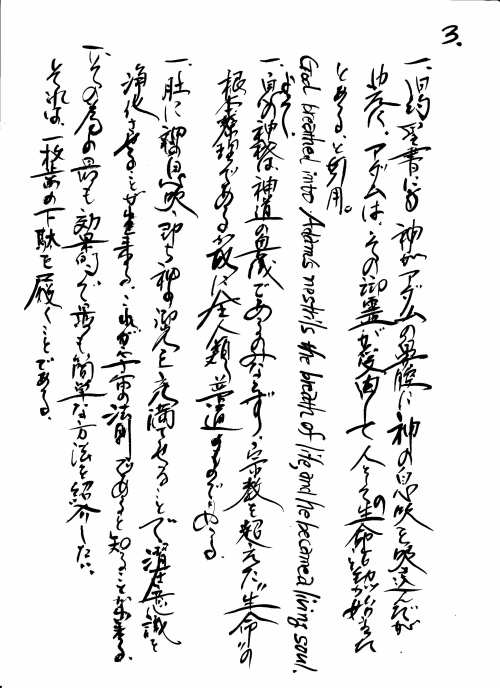 3.
一、旧約聖書に、神がアダムの鼻腔に神の息吹を吹き込んだが
故に、アダムは、その御霊が経由して人としての生命活動が始まった
とある、と引用。
God breathed into Adam's nostrils the breath of life, and he became a living soul.
一、真の神髄は、神道の真義であるのみならず、宗教を超えた"生命"の
根本原理であるが故に全人類普遍のものである。
一、肚に神の息吹、即ち神の御心を充満させることで潜在意識を
浄化させることが出来る、これが宇宙の法則であると知ることが出来る。
一、その為の最も効果的で最も簡単な方法を紹介したい。
それは、一枚歯の下駄を履くことである。